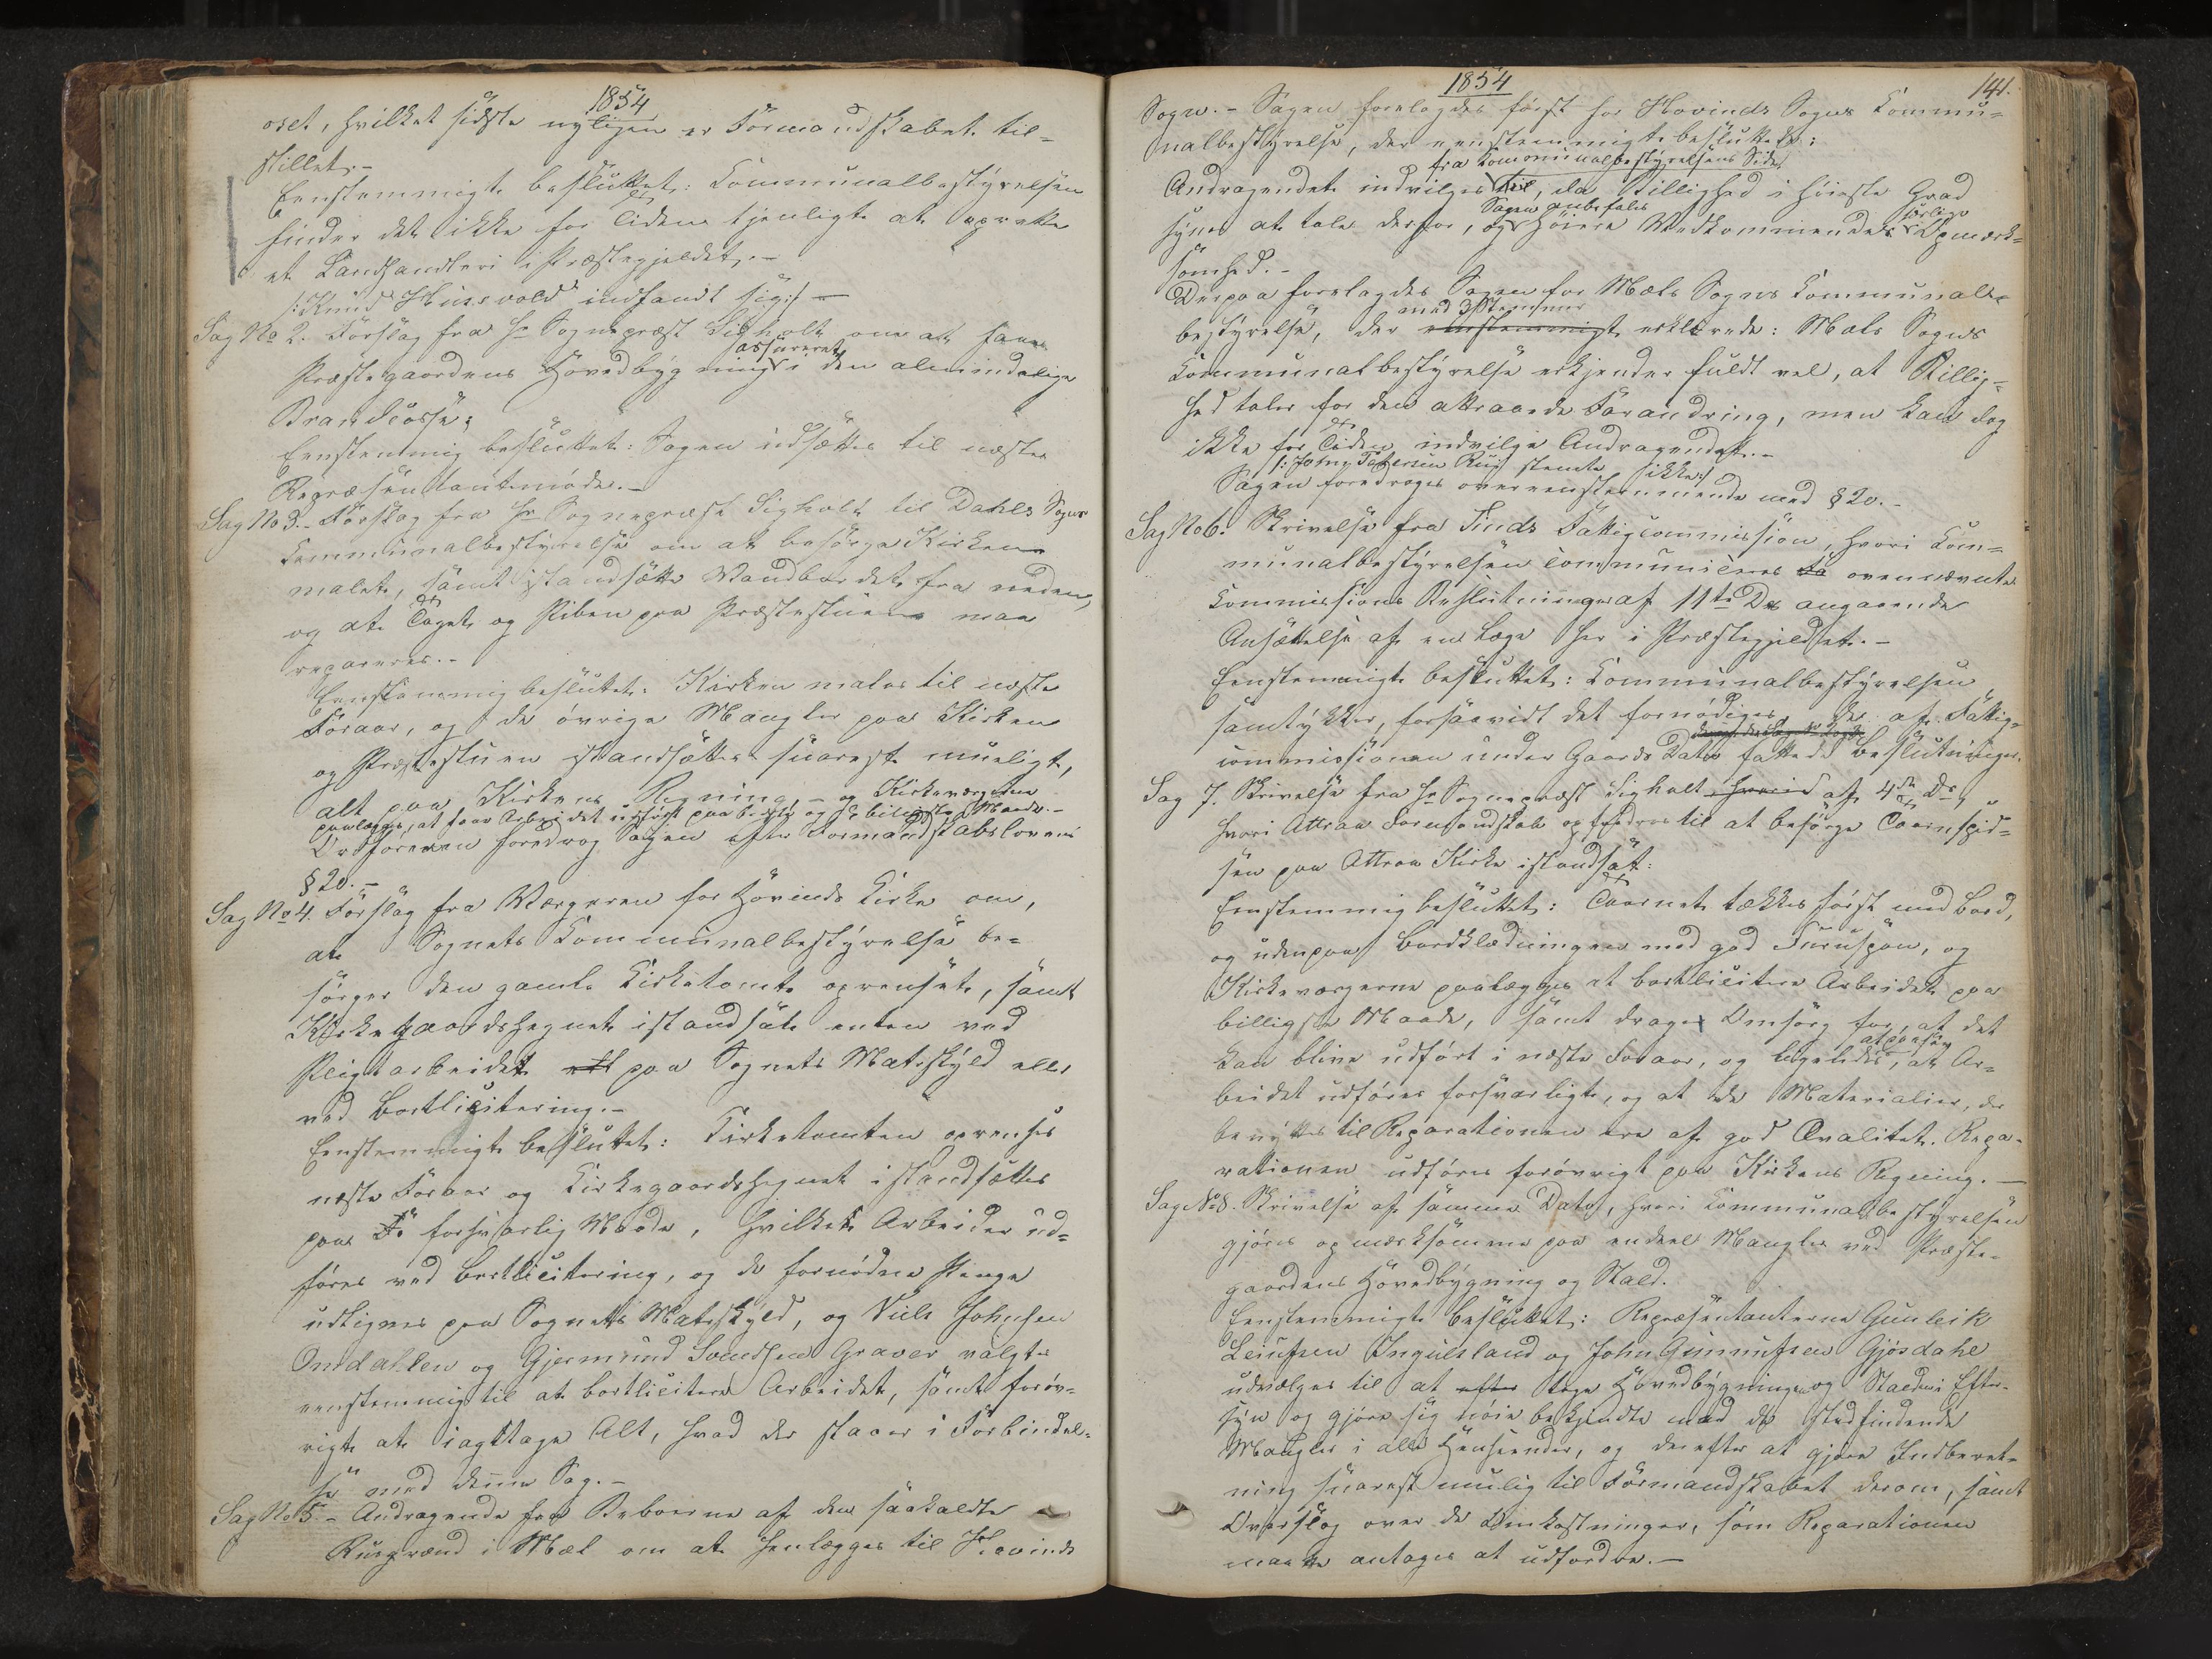 1854
oset, hvilket sidste nyligen er Formandskabet til-
stillet.-
Eenstemmigt besluttet: Communalbestyrelsen
finder det ikke for Tiden tjenligt at oprette
et Landhandleri i Præstegjeldet.-
/:Knud Huusvold indfandt sig:/ -
Sag No 2. Forslag fra Hr Sogneprest Sigholt om at faae
assureret
Præstegaardens Hovedbygning i den almindelige
Brandcasse;
Eenstemmig besluttet: Sagen udsættes til næste
Repræsentantmøde.-
Sag No 3.- Forslag fra Hr Sognepræst Sigholt til Dahls Sogns
Communalbestyrelse om at besørge Kirken
malet, samt istandsætte Vandbordet fra neden,
og at Taget og Piben paa Præstestuen maa
repareres.-
Eenstemmig besluttet: Kirken males til næste
Foraar, og de øvrige Mangler paa Kirken
og Præstestuen istandsættes snarest mueligt,
alt paa Kirkens Regning - og Kirkeværgerne
paalægges, at faae Arbeidet udført paa bedste og billigste Maade.-
Ordføreren foredrog Sagen efter Formandskabslovens
§ 20.-
Sag No 4. Forslag fra Værgeren for Hovinds Kirke om,
at Sognets Communalbestyrelse be-
sørger den gamle Kirketomt oprenset, samt
Kirkegaardshegnet istandsat enten ved
Pligtarbeidet paa Sognets Matskyld eller
ved Bortlicitering.-
Eenstemmigt besluttet: Kirketomten oprenses
næste Foraar og Kirkegaardshegnet istandsættes
paa forsvarlig Maade, hvilket Arbeider ud-
føres ved Bortlicitering, og de fornødne Penge
udlignes paa Sognets Matskyld, og Niels Johnsen
Omdahlen og Gjermund Svendsen Graver valgte
eenstemmig til at bortlicitere Arbeidet, samt forøv-
rigt at iagttage Alt, hvad der staaer i Forbindel-
se med denne Sag.-
Sag No 5.- Andragende fra Beboerne af den saakaldte
Ruugrænd i Mæl om at henlægges til Hovinds
1854
141.
Sogn.- Sagen forelagdes først for Hovinds Sogns Commu-
nalbestyrelse, der eenstemmigt besluttede:
fra Communalbestyrelsens Side
Andragendet indvilges, da Billighed i høieste Grad
Sagen anbefales
særlige
synes at tale derfor, og Høiere Vedkommendes Opmærk-
somhed.-
Derpaa forelagdes Sagen for Mæls Sogns Communal-
med 3 Stemmer
bestyrelse, der eenstemmigt erklærede: Mæls Sogns
Communalbestyrelse erkjender fuldt vel, at Billig-
hed taler for den attraaede Forandring, men kan dog
ikke for Tiden indvilge Andragendet.-
/: John Petersen Ruus stemte ikke:/
Sagen foredroges overeensstemmende med § 20.-
Sag No 6. Skrivelse fra Tinds Fattigcommission, hvori Com-
munalbestyrelsen communiceres ovennævnte
Commissions Beslutninger af 11te Ds angaaende
Ansættelse af en Læge her i Præstegjeldet.-
Eenstemmigt besluttet: Communalbestyrelsen
samtykker, forsaavidt det fornødiges, de af Fattig-
commissionen under Gaards Dato fattede Beslutninger.
Sag 7. Skrivelse fra Hr Sognepræst Sigholt af 4de Ds,
hvori Attraa Formandskab opfordres til at besørge Taarnspid-
sen paa Attraa Kirke istandsat:
Eenstemmig besluttet: Taarnet tækkes først med Bord,
og udenpaa Bordklædningen med god Furuspøn, og
Kirkeværgerne paalægges at bortlicitere Arbeidet paa
billigste Maade, samt drage Omsorg for, at det
at paasee
kan blive udført i næste Foraar, og ligeledes, at Ar-
beidet udføres forsvarligt, og at de Materialier, der
benyttes til Reparationen ere af god Qvalitet. Repa-
rationen udføres forøvrigt paa Kirkens Regning.-
Sag No 8. Skrivelse af samme Dato, hvori Communalbestyrelsen
gjøres opmærksomme paa endeel Mangler ved Præste-
gaardens Hovedbygning og Stald.
Eenstemmigt besluttet: Repræsentanterne Gunleik
Leiufsen Ingulsland og John Gunnufsen Gjøsdahl
udvælges til at efter tage Hovedbygningen og Stalden i Efter-
syn og gjøre sig nøie bekjendte med de stedfindende
Mangler i alle Henseender, og derefter at gjøre Indberet-
ning snarest mulig til Formandskabet derom, samt
Overslag over de Omkostninger, som Reparationen
maatte antages at udfordre.-